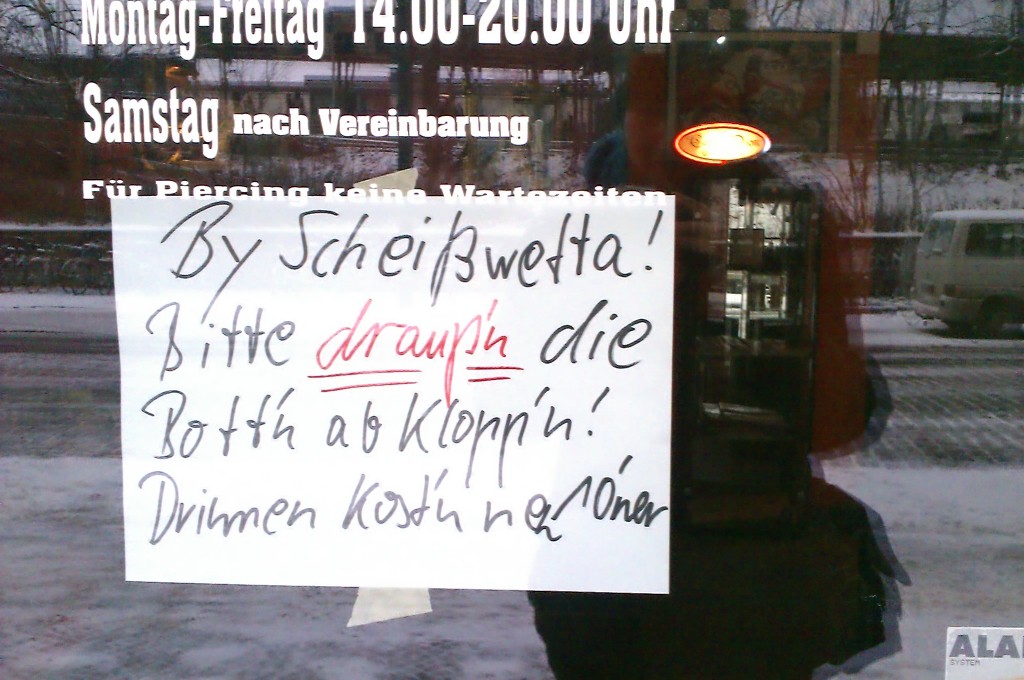 Montag-Freitag 14.00-20.00 Uhr
Samstag nach Vereinbarung
Für Piercing keine Wartezeiten
By Scheißwetta!
Bitte drauß'n die
Bott'n abklopp'n!
Drinnen kost'n 'n 10ner
ALA
SYSTEM